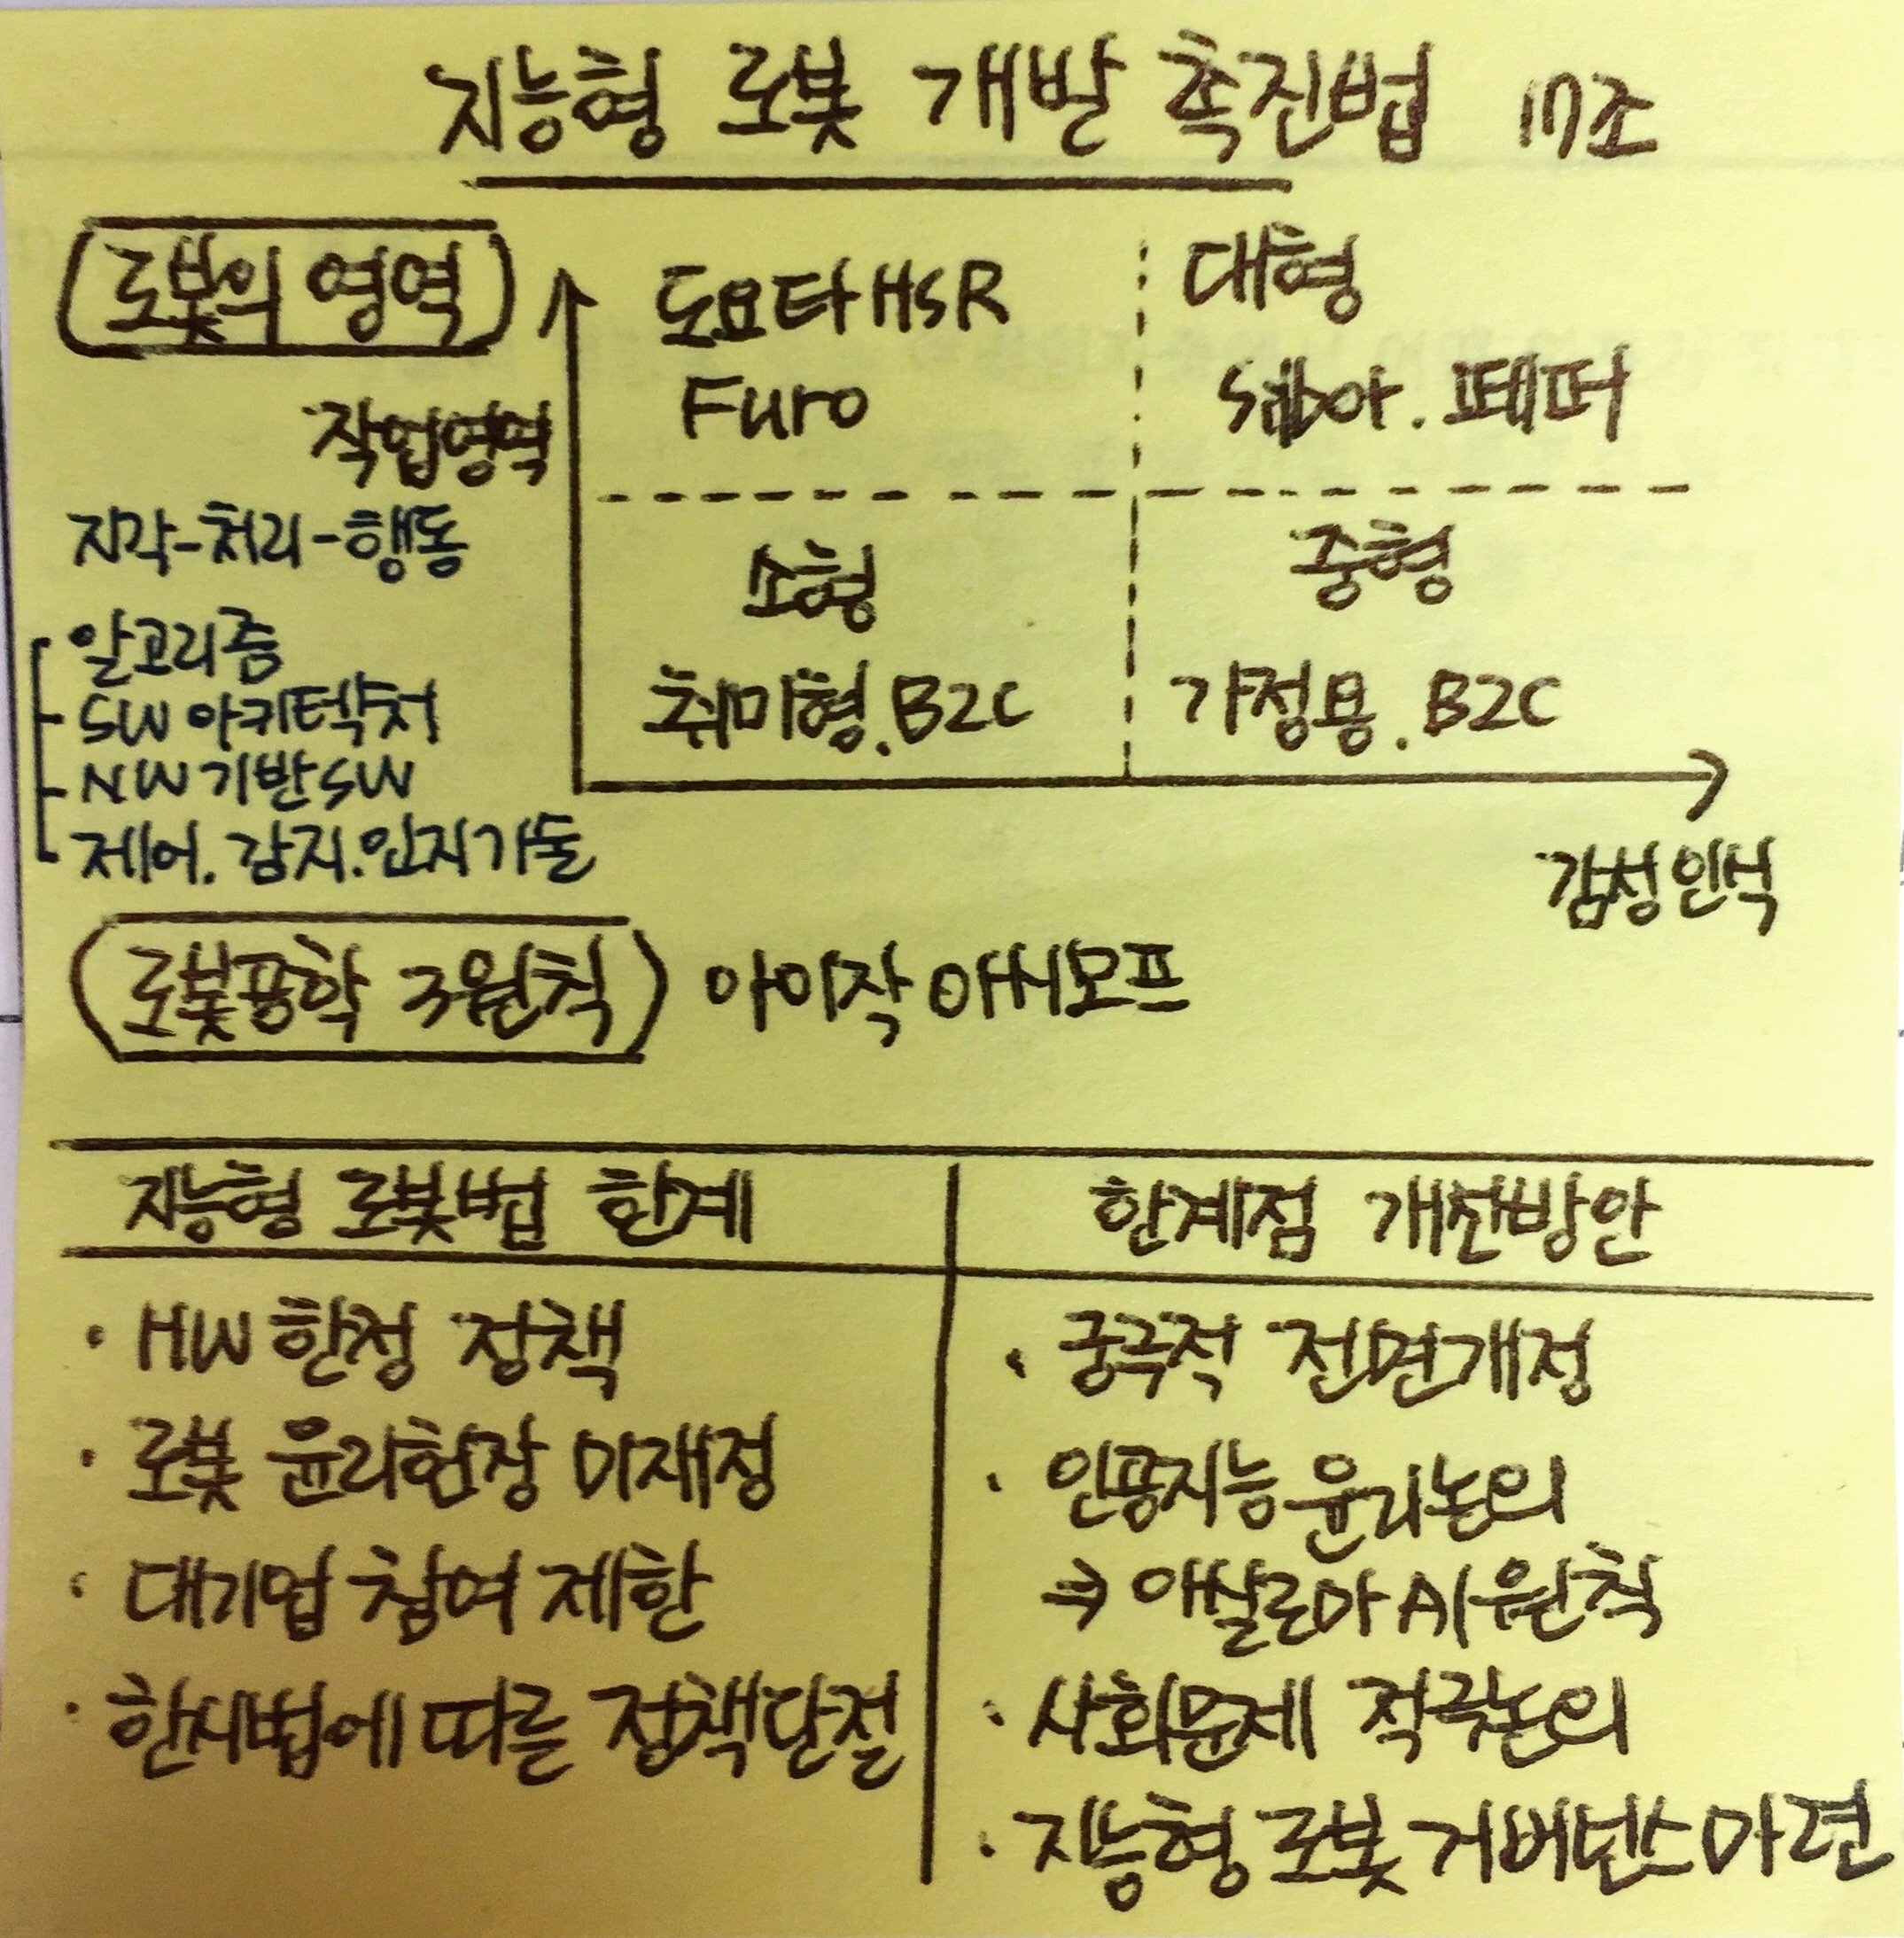 지능형 로봇 개발 촉진법 17조
로봇의 영역
도요타 HSR
대형
Furo
페퍼
작업영역
지각-처리-행동
소형
중형
알고리즘
SW 아키텍쳐
취미형. B2C
가정용. B2C
NW 기반 SW
제어. 감지. 인지기술
감성인식
로봇공학 3원칙
아이작 아시모프
지능형 로봇법 한계
한계점 개선방안
· HW 한정 정책
· 궁극적 전면개정
· 로봇 윤리헌장 미재정
· 인공지능 윤리논의
· 대기업 참여 제한
⇒ 애실로마 AI 원칙
· 한시법에 따른 정책단절
· 사회문제 적극논의
· 지능형 로봇 거버넌스 마련